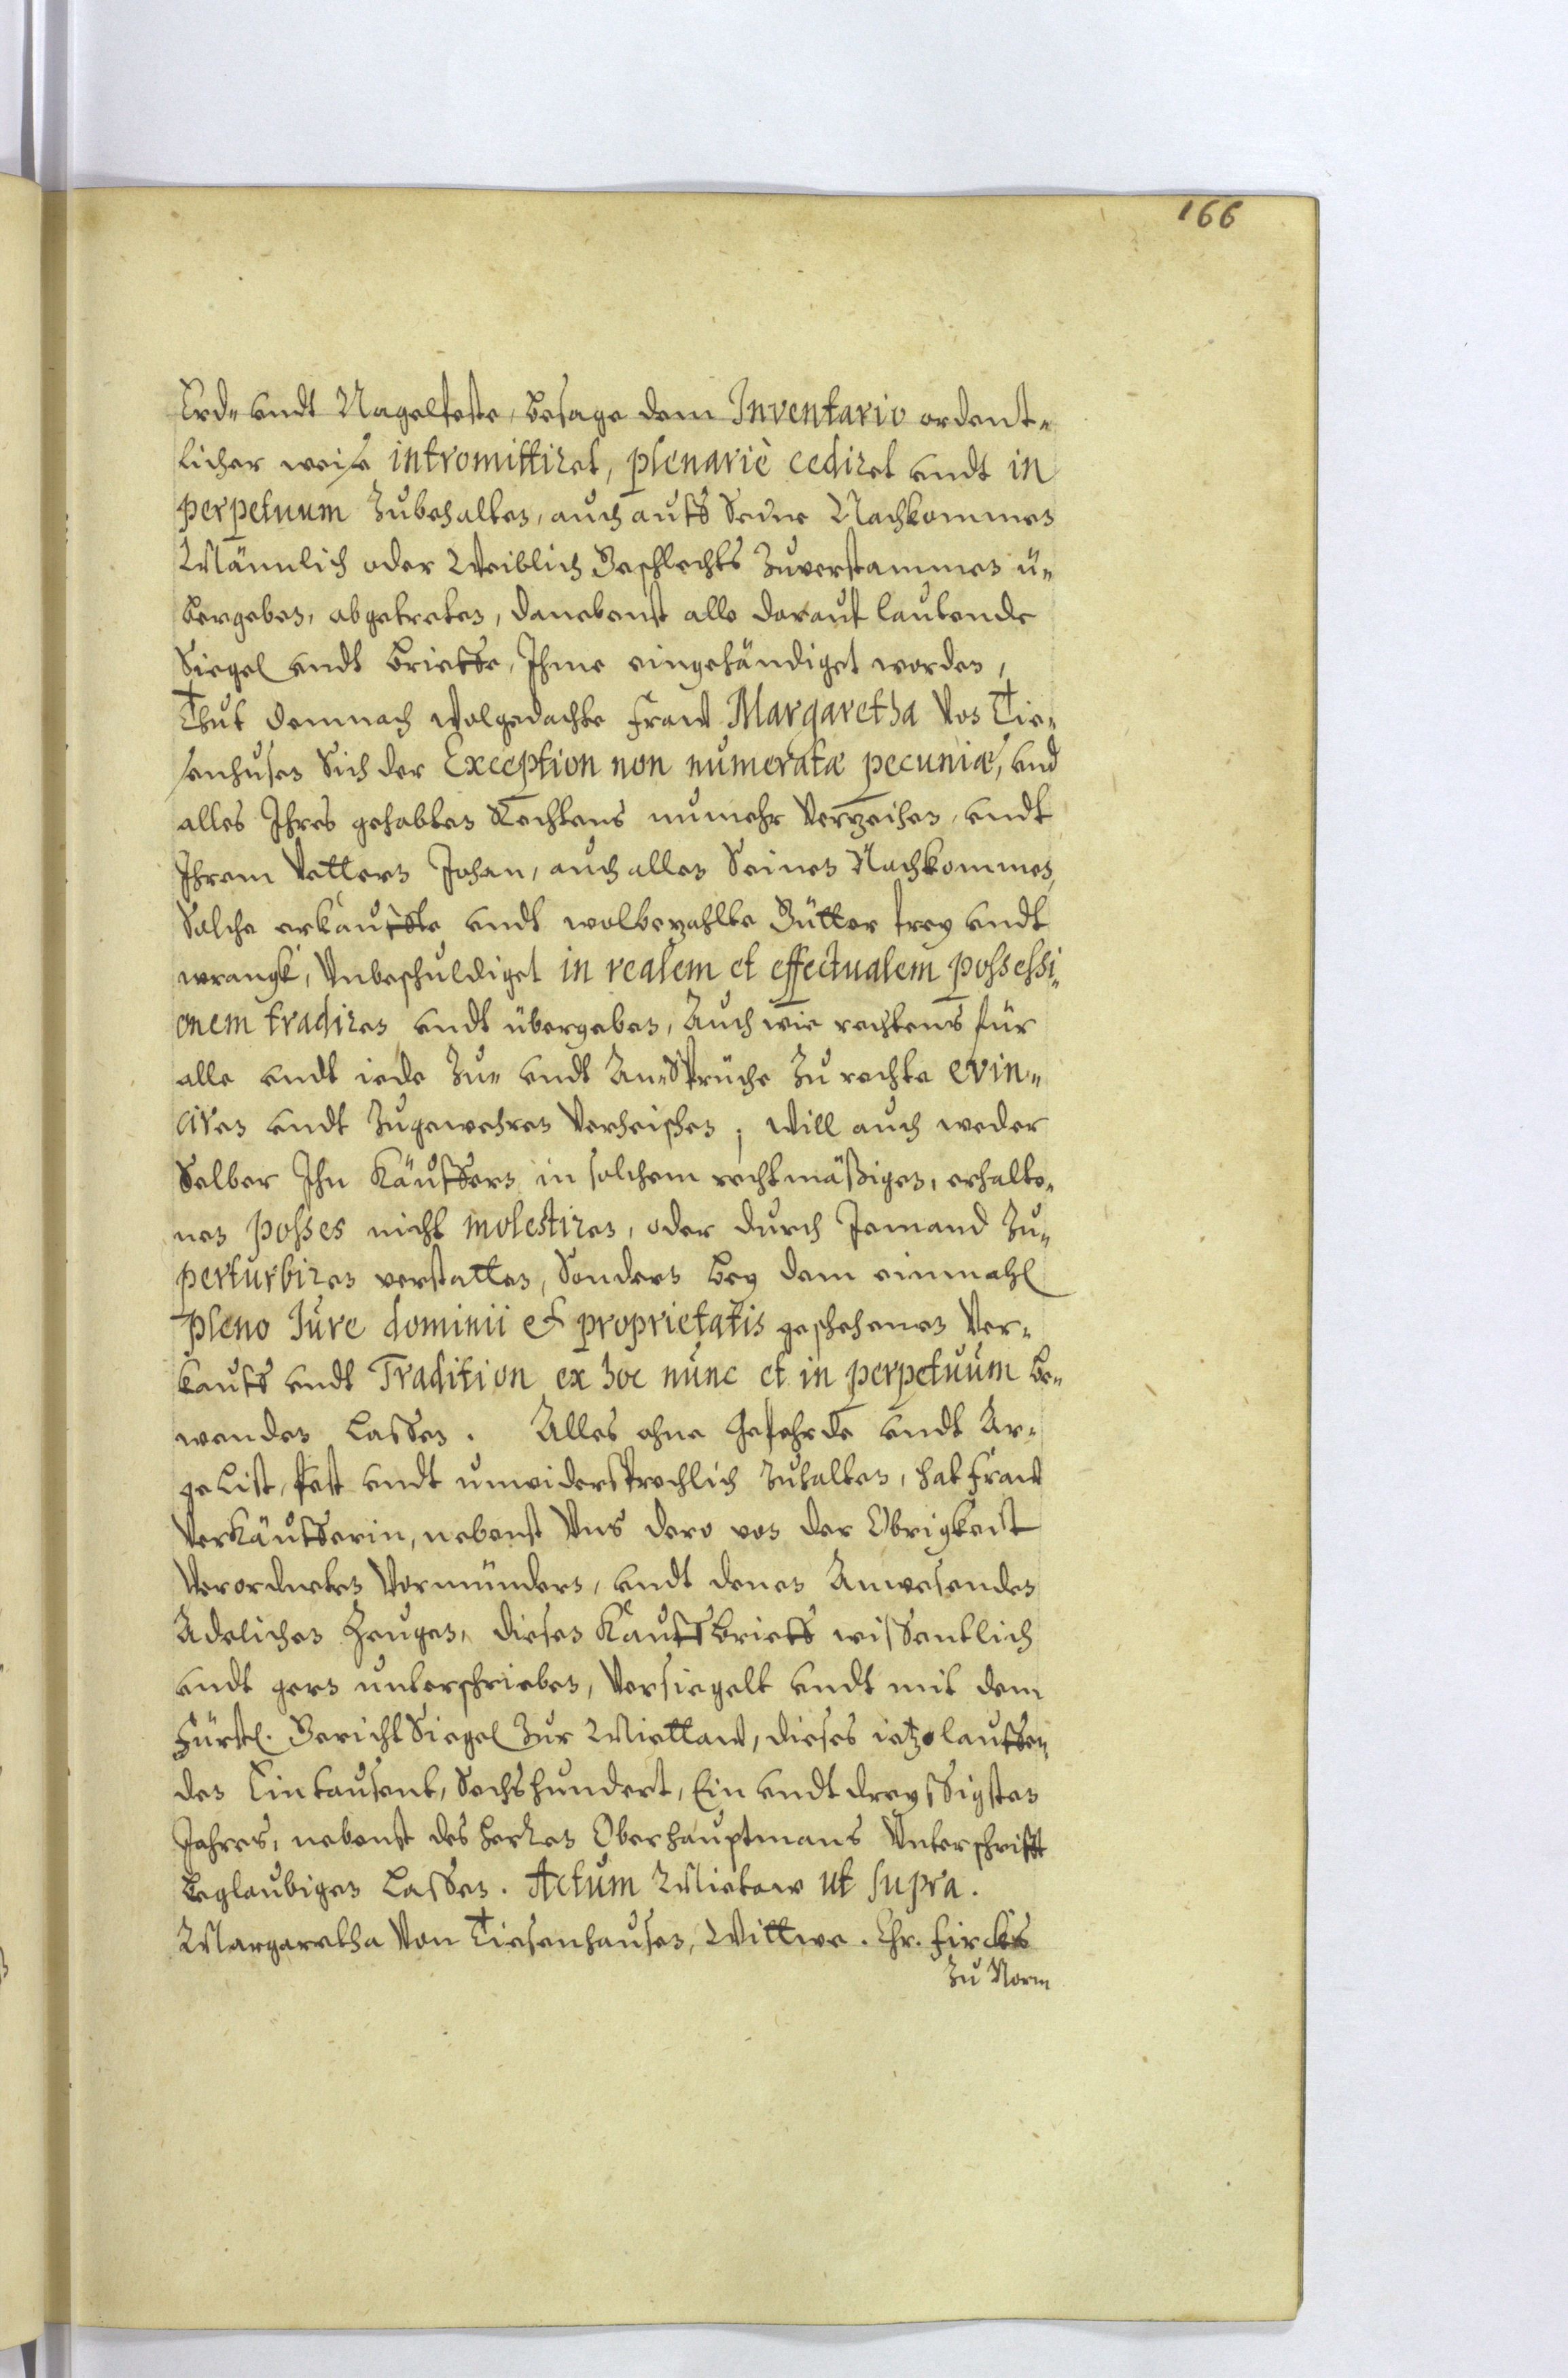 166
Erd- undt Nagelfeste, besage dem Inventario ordent-
licher weise intromittiret, plenariè cediret undt in
perpetuum Zubehalten, auch aufs Seine Nachkommen
Männlich oder Weiblich Geschlechts Zuverstammen ü-
bergeben, abgetreten, danebenst alle darauf lautende
Siegel undt brieffe, Ihme eingehändiget worden,
Thut demnach Wolgedachte Fraw Margaretha Von Tie-
senhusen Sich der Exception non numeratæ pecuniæ, und
alles Ihres gehabten Rechtens numehr Verzeihen, undt
Ihrem Vettern Johan, auch allen Seinen Nachkommen,
Solche erkauffte undt wolbezahlte Gütter frey undt
wrangk, Unbeschuldiget in realem et effectualem possessi-
onem tradiren undt übergeben, Auch wie rechtens für
alle undt iede Zu- undt An-Sprüche Zu rechte evin-
ciren undt Zugewehren Verheischen; Will auch weder
Selber Ihn Käuffern in solchem rechtmäßigen, erhalte-
nen posses nicht molestiren, oder durch Jemand Zu-
perturbiren verstatten, Sondern bey dem einmahl
pleno Iure dominii et proprietatis geschehenen Ver-
kaufs undt Tradition ex hoc nunc et in perpetuum be-
wenden Lassen. Alles ohne Gefehrde undt Ar-
ge List, fest undt unwidersprechlich Zuhalten, hat Fraw
Verkäufferin, nebenst Uns dero von der Obrigkeit
Verordneten Vormündern, undt denen Anwesenden
Adelichen Zeugen, diesen Kauffbrieff wissentlich
undt gern unterschrieben, Versiegelt undt mit dem
Fürstl. Gericht Siegel Zur Mittaw, dieses ietzo lauffen-
den Eintausent, Sechshundert, Ein undt dreyssigsten
Jahres, nebenst des Herren Oberhauptmans Unterschrifft
beglaubigen Lassen. Actum Mietaw ut supra.
Margaretha Von Tiesenhausen, Wittwe. Chr. Fircks
Zu Norm